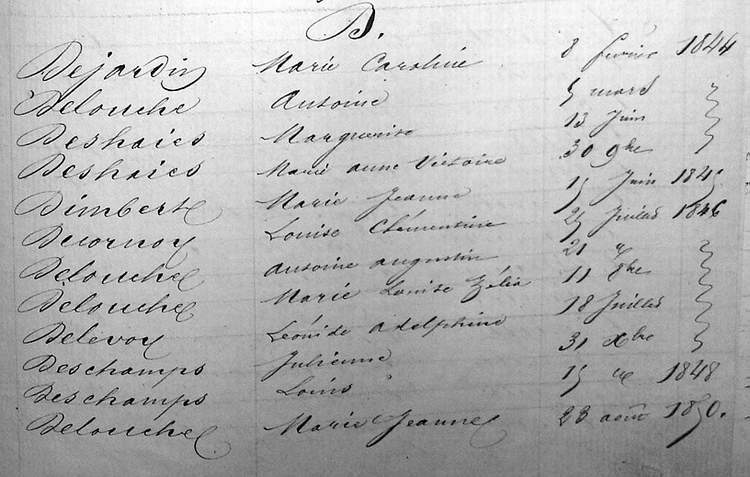 D.
Dejardin Marie Caroline 8 février 1844
Delouche Antoine 5 mars "
Deshaies Marguerite 13 Juin "
Deshaies Marie anne Victoire 30 9bre "
Dimbert Marie Jeanne 15 Juin 1845
Decornoy Louise Clémentine 25 Juillet 1846
Delouche antoine augustin 21 " "
Delouche Marie Louise Zélia 11 8bre "
Delevoy Léonide adelphine 18 Juillet "
Deschamps Julienne 31 xbre "
Deschamps Louis 15 " 1848
Delouche Marie Jeanne 23 août 1850.